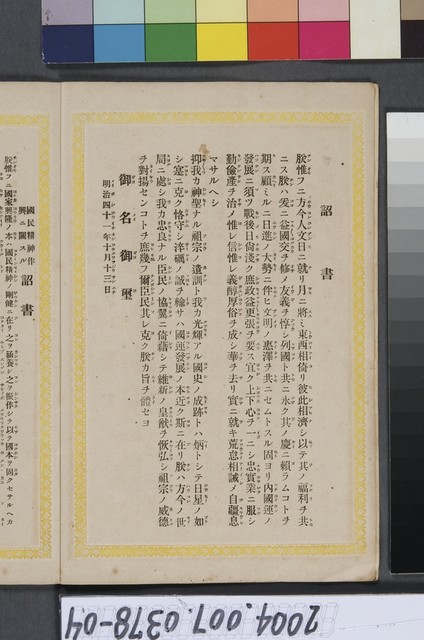 詔書
朕惟フニ方今人文日ニ就リ月ニ將ミ東西相倚リ彼此相濟シ以テ其ノ福利ヲ共
ニス朕ハ爰ニ益國交ヲ修メ友義ヲ惇シ列國ト共ニ永ク其ノ慶ニ賴ラムコトヲ
期ス顧ミルニ日進ノ大勢ニ伴ヒ文明ノ惠澤ヲ共ニセムトスル固ヨリ內國運ノ
發展ニ須ツ戰後日尙淺ク庶政益更張ヲ要ス宜ク上下心ヲ一ニシ忠實業ニ服シ
勤儉產ヲ治メ惟レ信惟レ義醇厚俗ヲ成シ華ヲ去リ實ニ就キ荒怠相誡メ自彊息
マサルヘシ
抑我カ神聖ナル祖宗ノ遺訓ト我カ光輝アル國史ノ成跡トハ炳トシテ日星ノ如
シ寔ニ克ク恪守シ淬礪ノ誠ヲ輸サハ國運發展ノ本近ク斯ニ在リ朕ハ方今ノ世
局ニ處シ我カ忠良ナル臣民ノ協翼ニ倚藉シテ維新ノ皇猷ヲ恢弘シ祖宗ノ威德
ヲ對揚センコトヲ庶幾フ爾臣民其レ克ク朕カ旨ヲ體セヨ
御名御璽
明治四十一年十月十三日
國民精神作
興ニ關スル
詔書
朕惟フニ國家興隆ノ本ハ國民精神ノ剛健ニ在リ之ヲ涵養シ之ヲ振作シテ以テ國本ヲ固クセサルヘカ
2004.007.0378-04